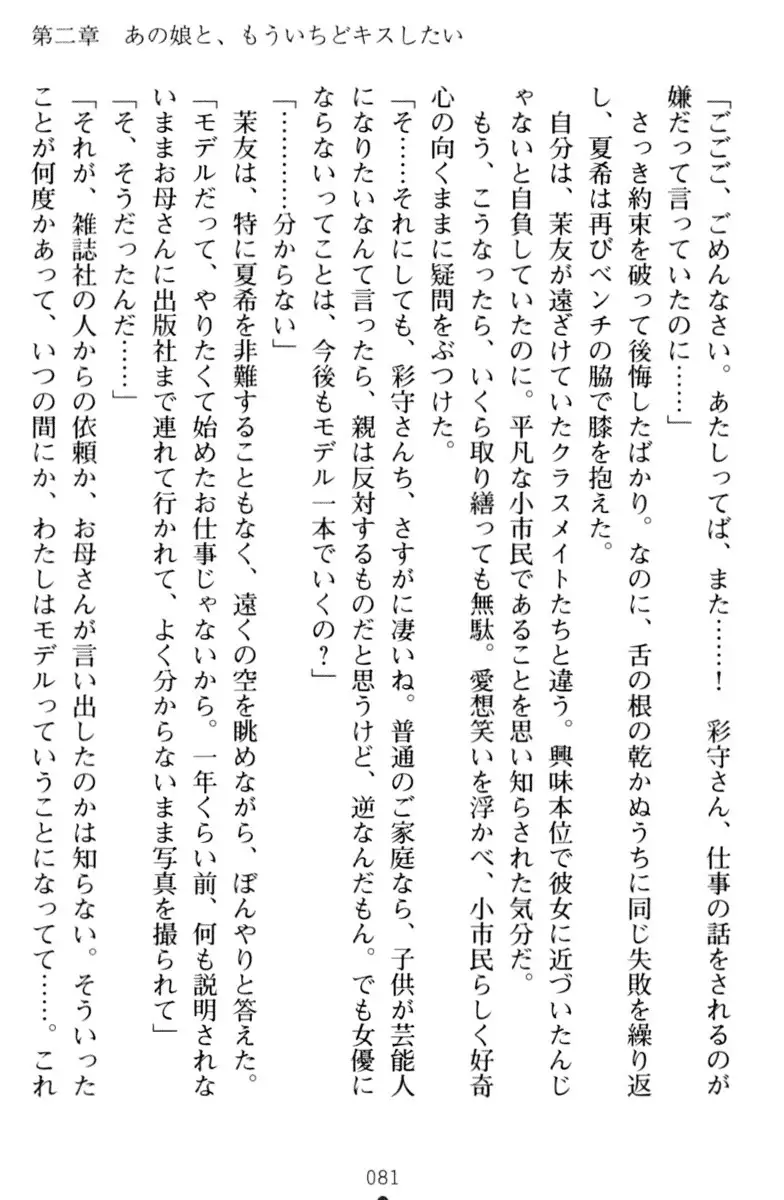 第二章　あの娘と、もういちどキスしたい
「ごごご、ごめんなさい。あたしってば、また……！　彩守さん、仕事の話をされるのが
嫌だって言っていたのに……」
　さっき約束を破って後悔したばかり。なのに、舌の根の乾かぬうちに同じ失敗を繰り返
し、夏希は再びベンチの脇で膝を抱えた。
　自分は、茉友が遠ざけていたクラスメイトたちと違う。興味本位で彼女に近づいたんじ
ゃないと自負していたのに。平凡な小市民であることを思い知らされた気分だ。
　もう、こうなったら、いくら取り繕っても無駄。愛想笑いを浮かべ、小市民らしく好奇
心の向くままに疑問をぶつけた。
「そ……それにしても、彩守さんち、さすがに凄いね。普通のご家庭なら、子供が芸能人
になりたいなんて言ったら、親は反対するものだと思うけど、逆なんだもん。でも女優に
ならないってことは、今後もモデル一本でいくの？」
「…………分からない」
　茉友は、特に夏希を非難することもなく、遠くの空を眺めながら、ぼんやりと答えた。
「モデルだって、やりたくて始めたお仕事じゃないから。一年くらい前、何も説明されな
いままお母さんに出版社まで連れて行かれて、よく分からないまま写真を撮られて」
「そ、そうだったんだ……」
「それが、雑誌社の人からの依頼か、お母さんが言い出したのかは知らない。そういった
ことが何度かあって、いつの間にか、わたしはモデルっていうことになってて……。これ
081